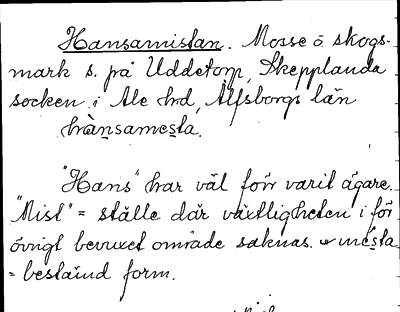 Hansamistan. Mosse ō skogs-
mark s. på Uddetorp, Skepplanda
socken i Ale hrd, Älfsborgs län
hànsamesta.
"Hans" har väl förr varit ägare.
"Mist" = ställe där växtligheten i för
övrigt bevuxet område saknas. mésta
= bestämd form.